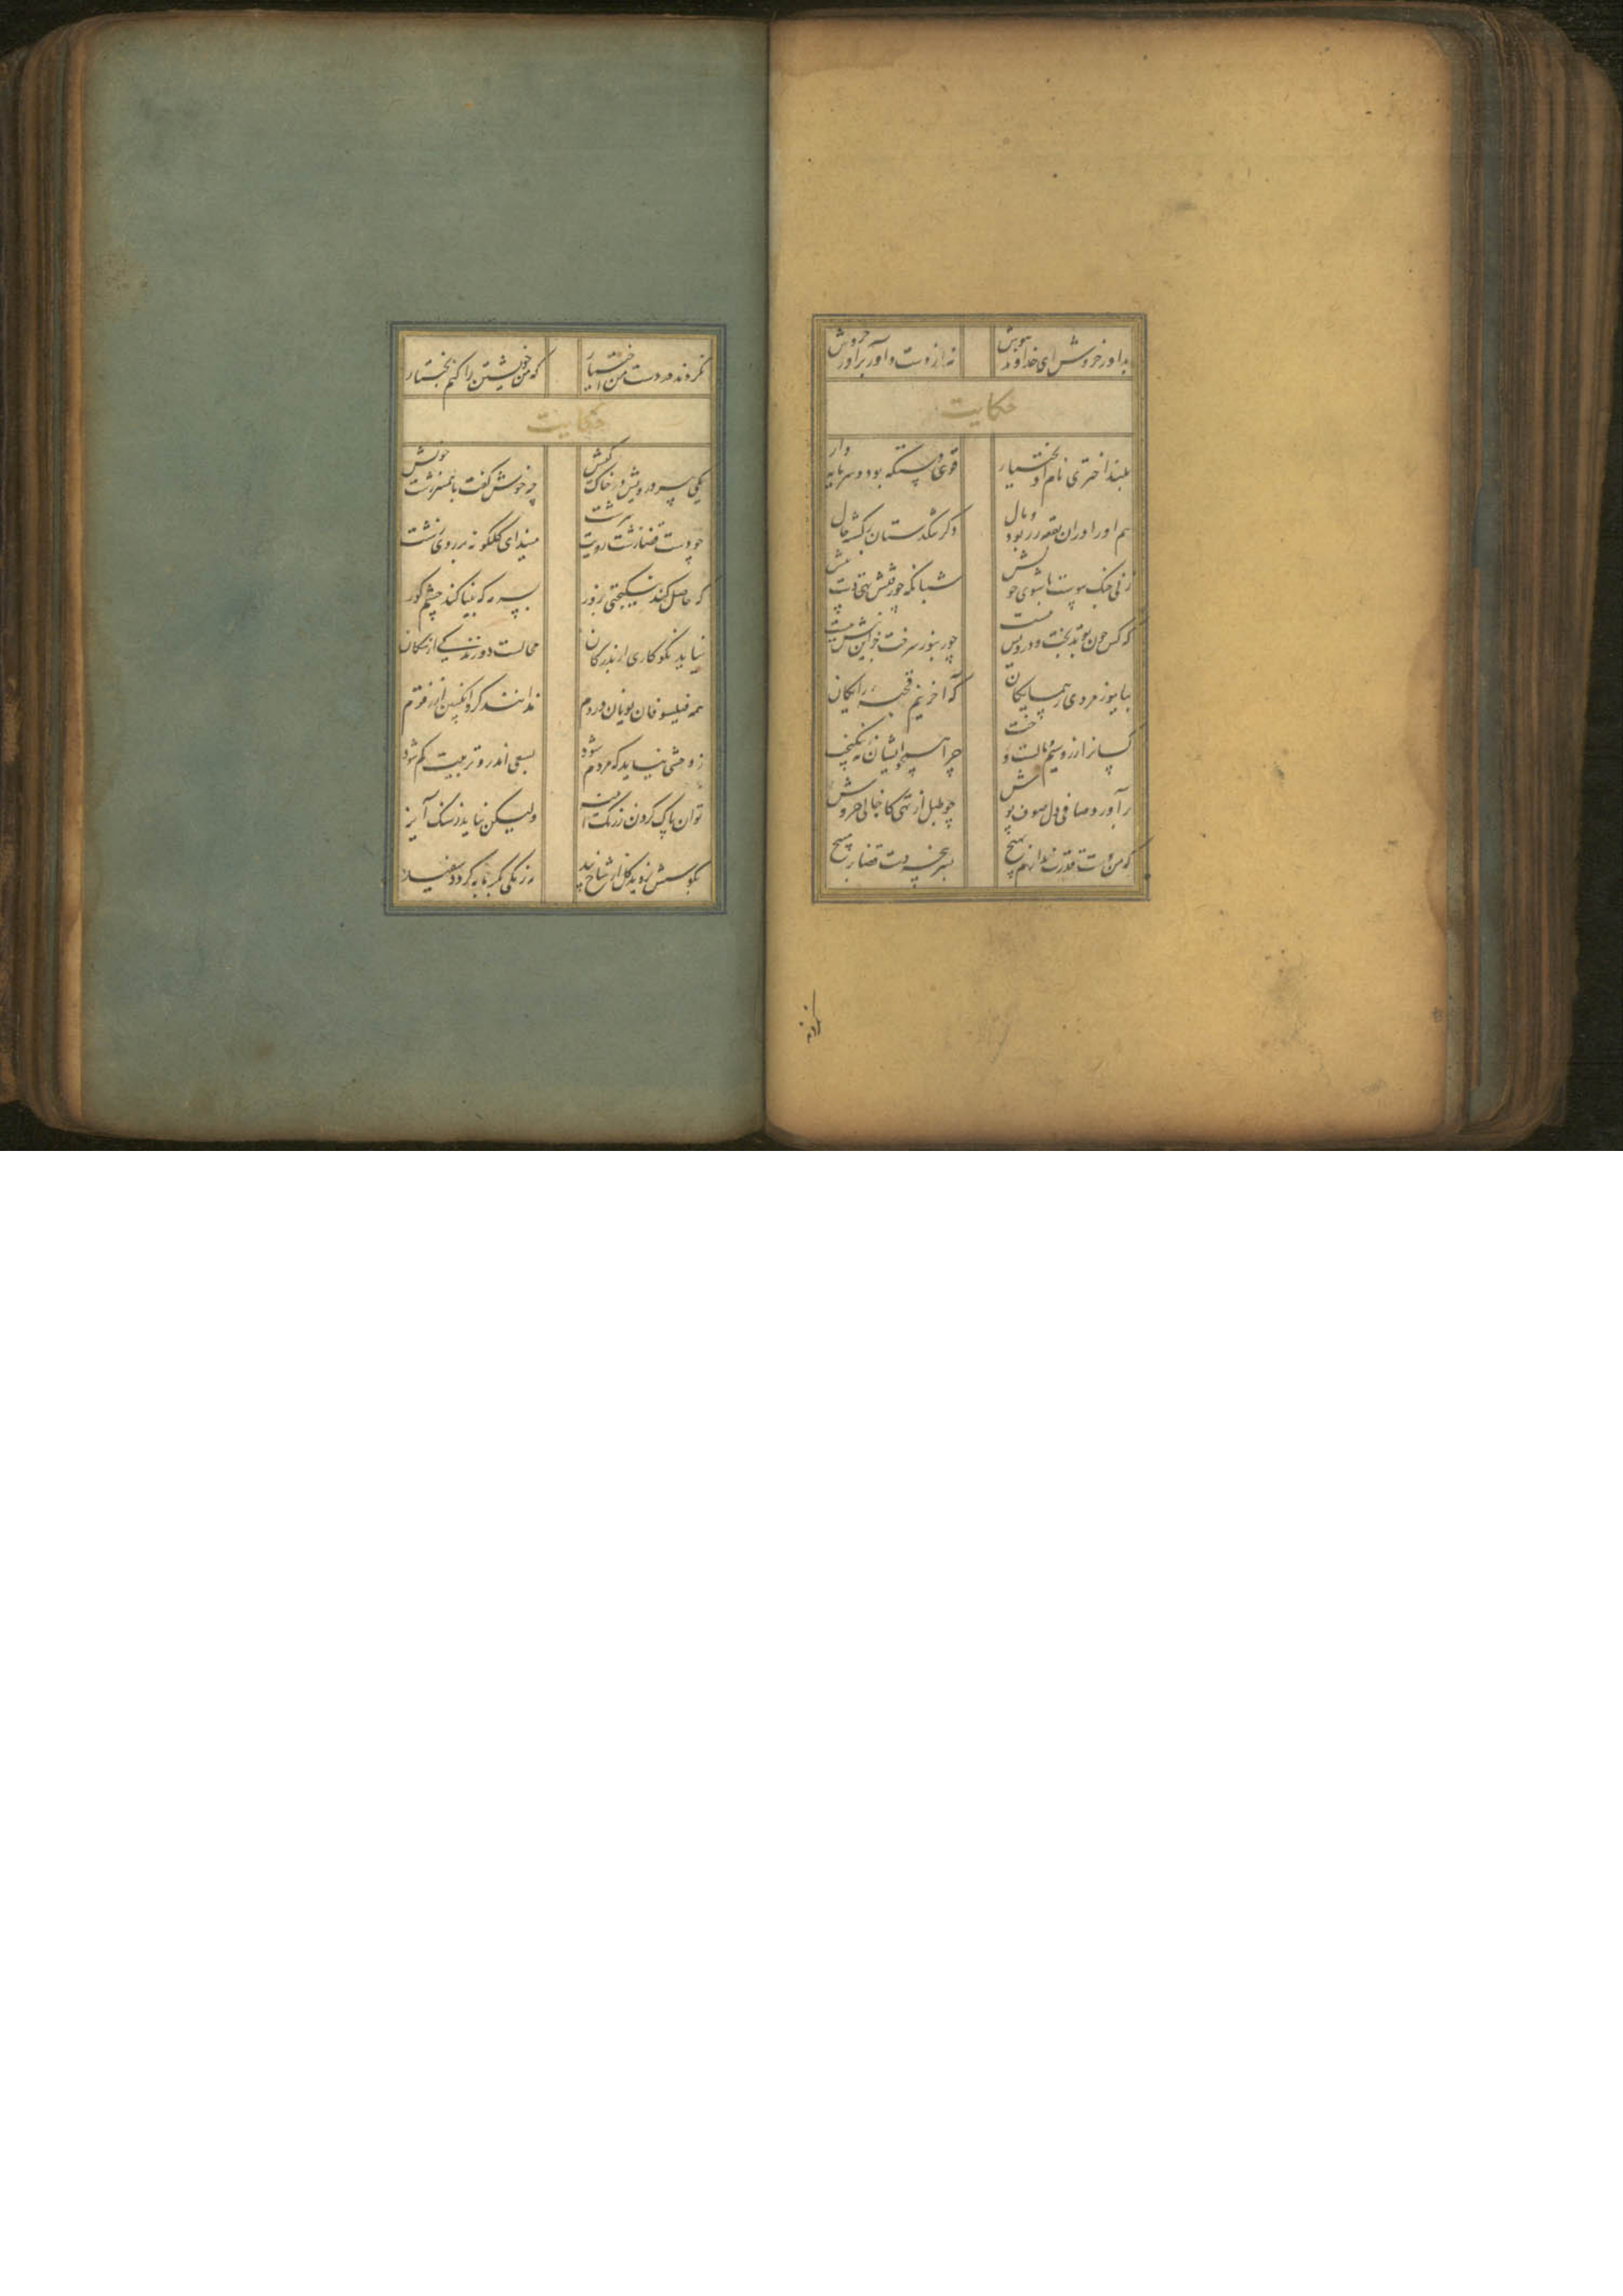 بداور خروش ای خداوند هوش نه از دست داور برآور خروش
حکایت
بلند اختری نام او بختیار قوی دستگه بود و سرمایه دار
هم او را در ان بقعه زر بود و مال دگر تنگدستان برگشته حال
زنی جنگ پیوست با شوی خویش شبانگه چو رفتش تهی دست پیش
که کس چون تو بدبخت و درویش نیست چو زنبور سرخت جز این نیش نیست
بیاموز مردی ز همسایگان که آخر نیم قحبه رایگان
کسانرا زر و سیم و ملکست و رخت چرا همچو ایشان نه نیکبخت
برآورد صافی دل صوف پوش چو طبل از تهی گاه خالی خروش
که من دست قدرت ندارم بهیچ بسرپنجه دست قضا بر مپیچ
نکردند
نکردند در دست من اختیار که من خویشتن را کنم بختیار
حکایت
یکی پیر درویش در خاک کیش چه خوش گفت با همسر زشت خویش
چو دست قضا زشت رویت سرشت میندای گلگونه بر روی زشت
که حاصل کند نیکبختی بزور بسرمه که بینا کند چشم کور
نیاید نکوکاری از بدرگان محالست دوزندگی از سگان
همه فیلسوفان یونان و روم ندانند کرد انگبین از زقوم
ز وحشی نیاید که مردم شود بسعی اندرو تربیت گم شود
توان پاک کردن ز زنگ آینه ولیکن نیاید ز سنگ آینه
بکوشش نروید گل از شاخ بید نه زنگی بگرمابه گردد سفید